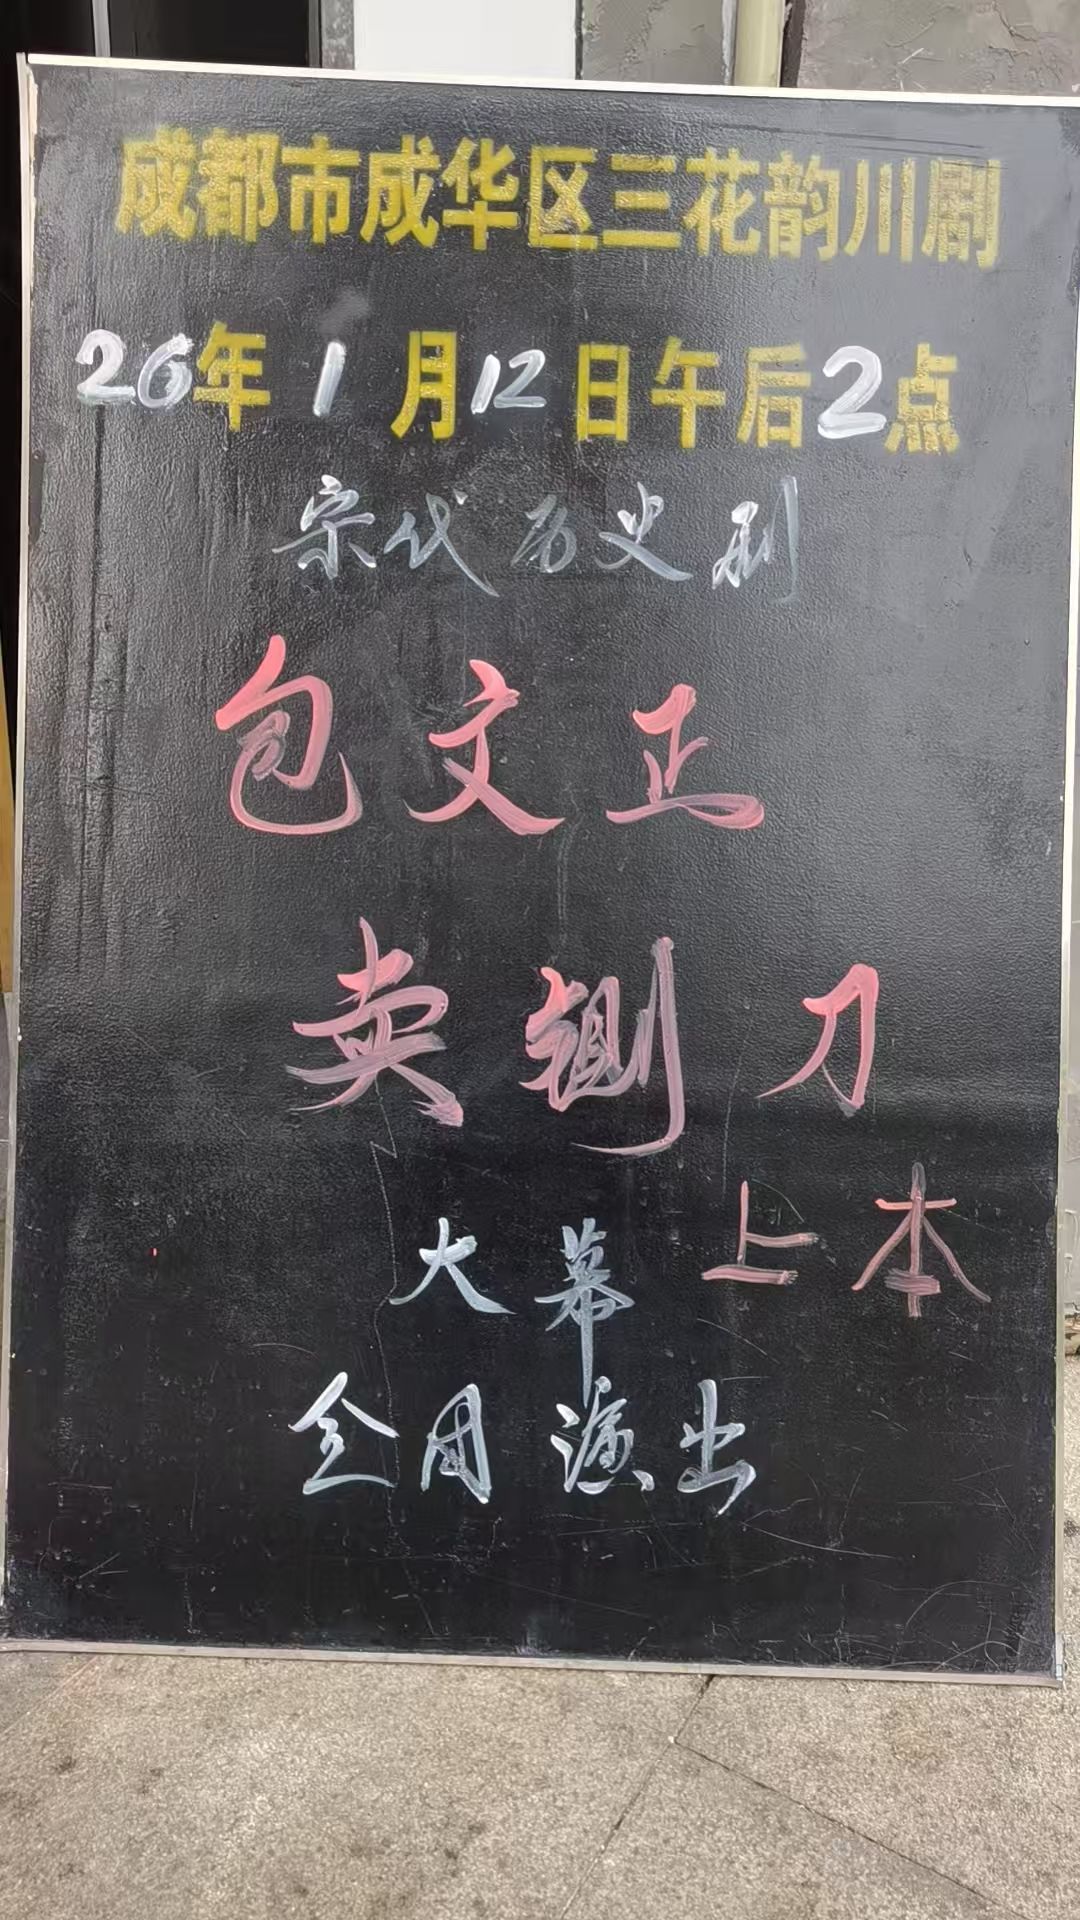 成都市成华区三花韵川剧
26年1月12日午后2点
宋代历史剧
包文正
卖铡刀
上本
大幕
全团演出